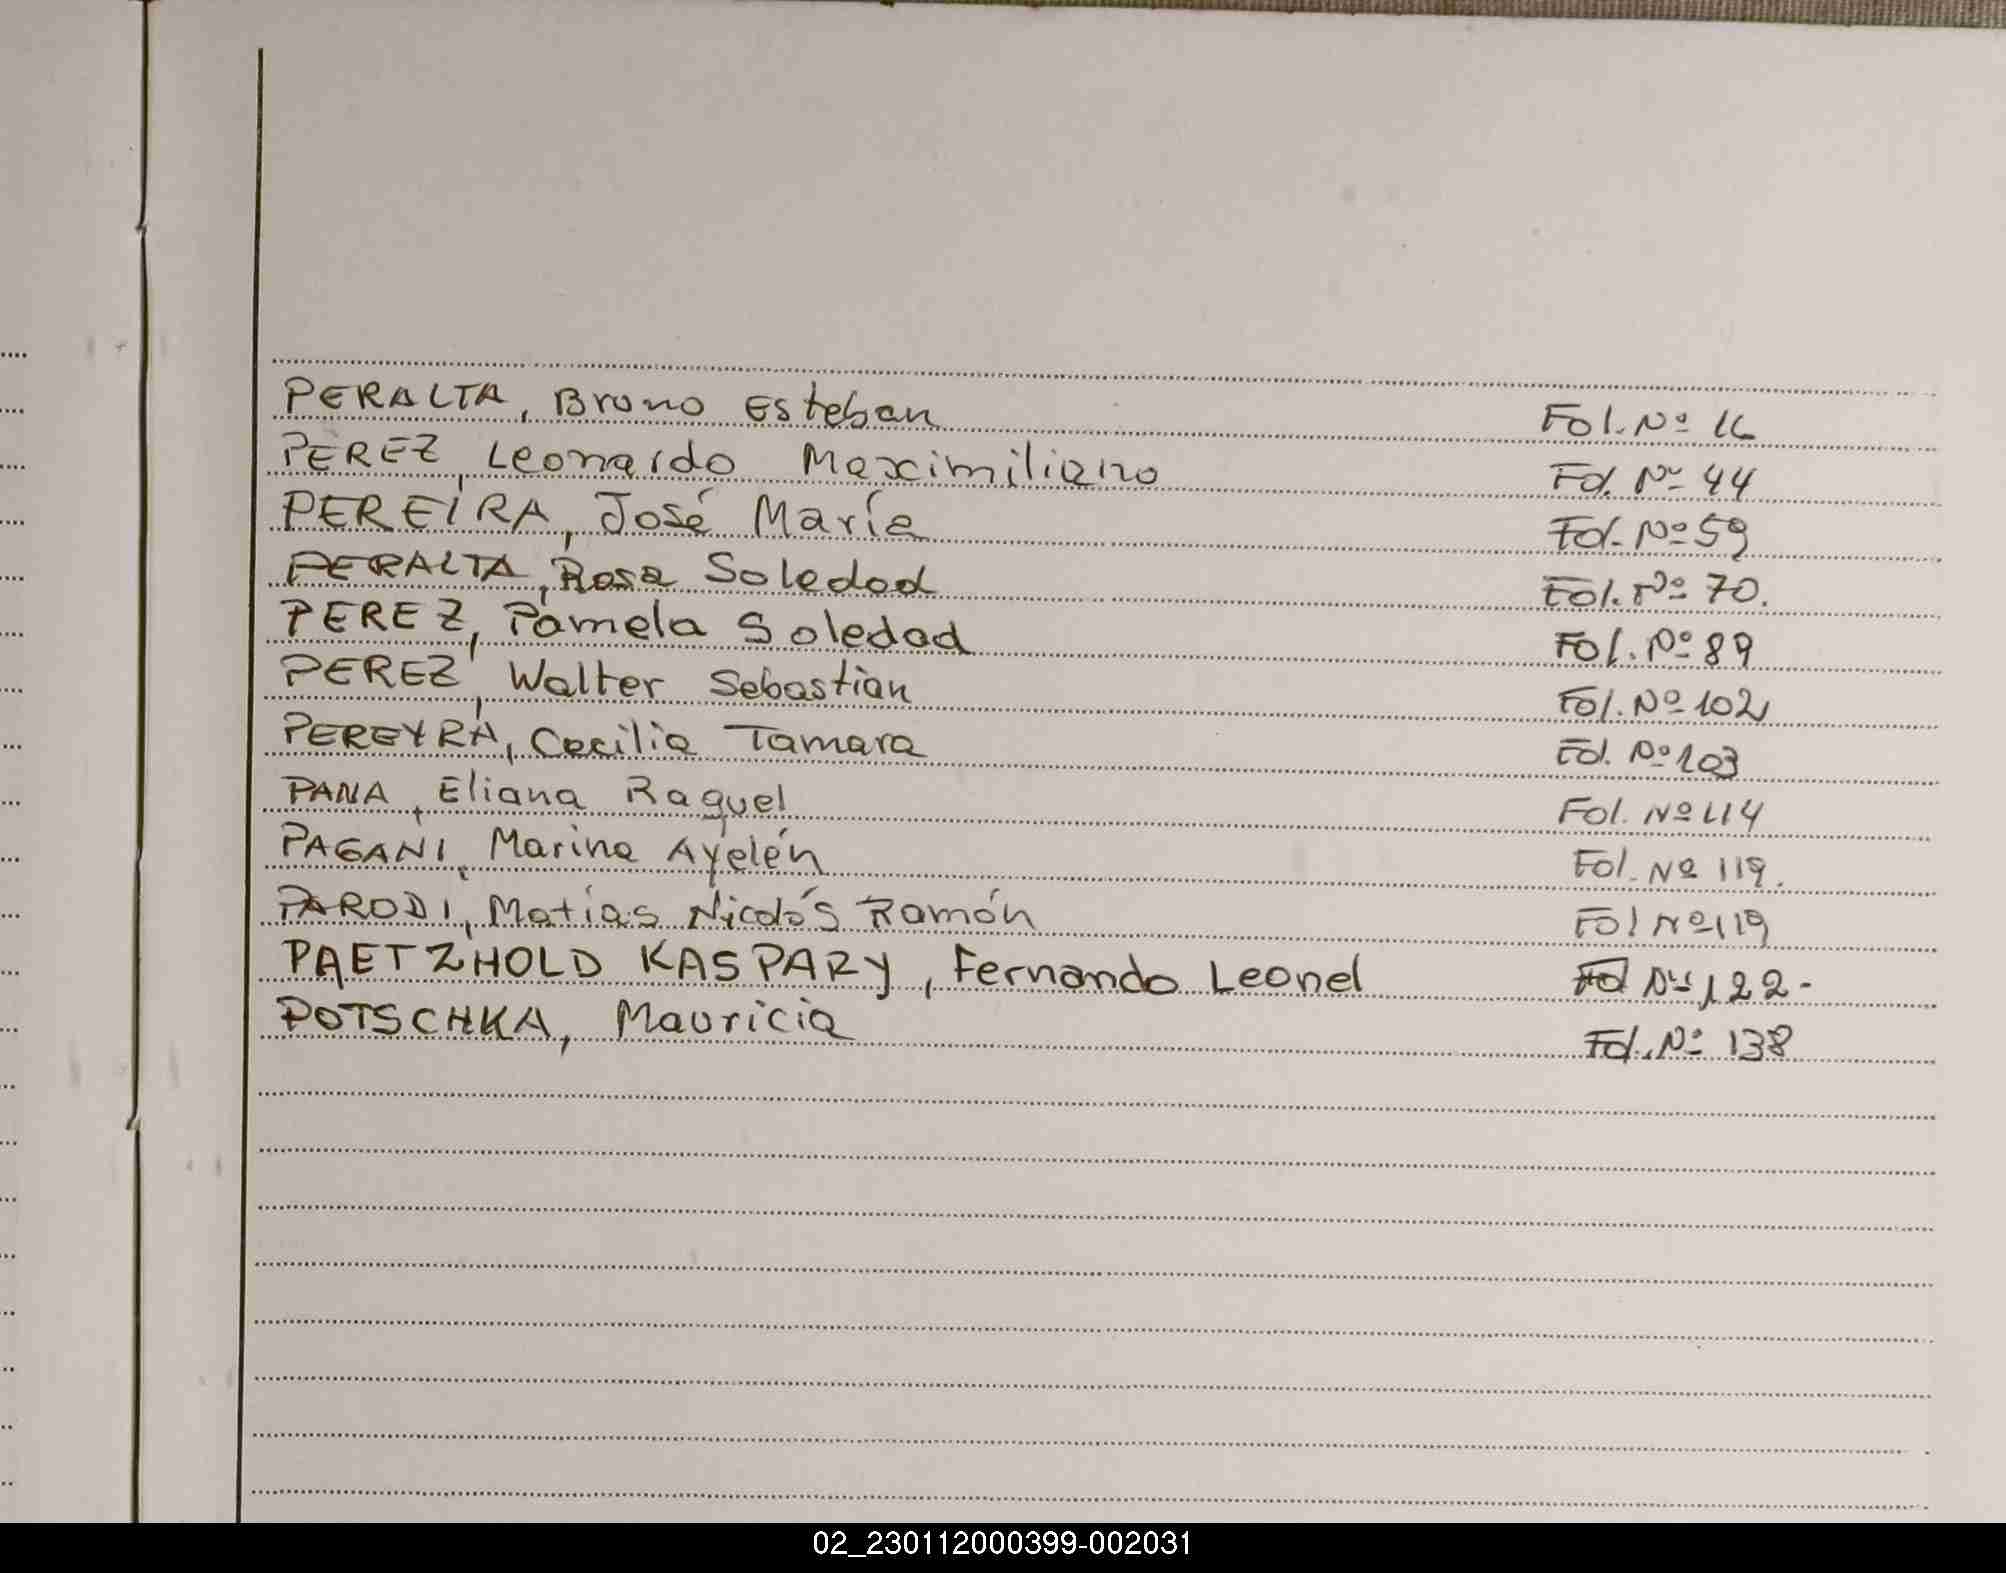 PERALTA, Bruno Esteban Fol. Nº 16
PEREZ, Leonardo Maximiliano Fol. Nº 44
PEREIRA, José María Fol. Nº 59
PERALTA, Rosa Soledad Fol. Nº 70.
PEREZ, Pamela Soledad Fol. Nº 89
PEREZ, Walter Sebastian Fol. Nº 102
PEREYRA, Cecilia Tamara Fol. Nº 103
PANA, Eliana Raquel Fol. Nº 114
PAGANI, Marina Ayelén Fol. Nº 119.
PARODI, Matías Nicolás Ramón Fol Nº 119
PAETZHOLD KASPARY, Fernando Leonel Fol Nº 122-
POTSCHKA, Mauricia Fol. Nº 138
02_230112000399-002031